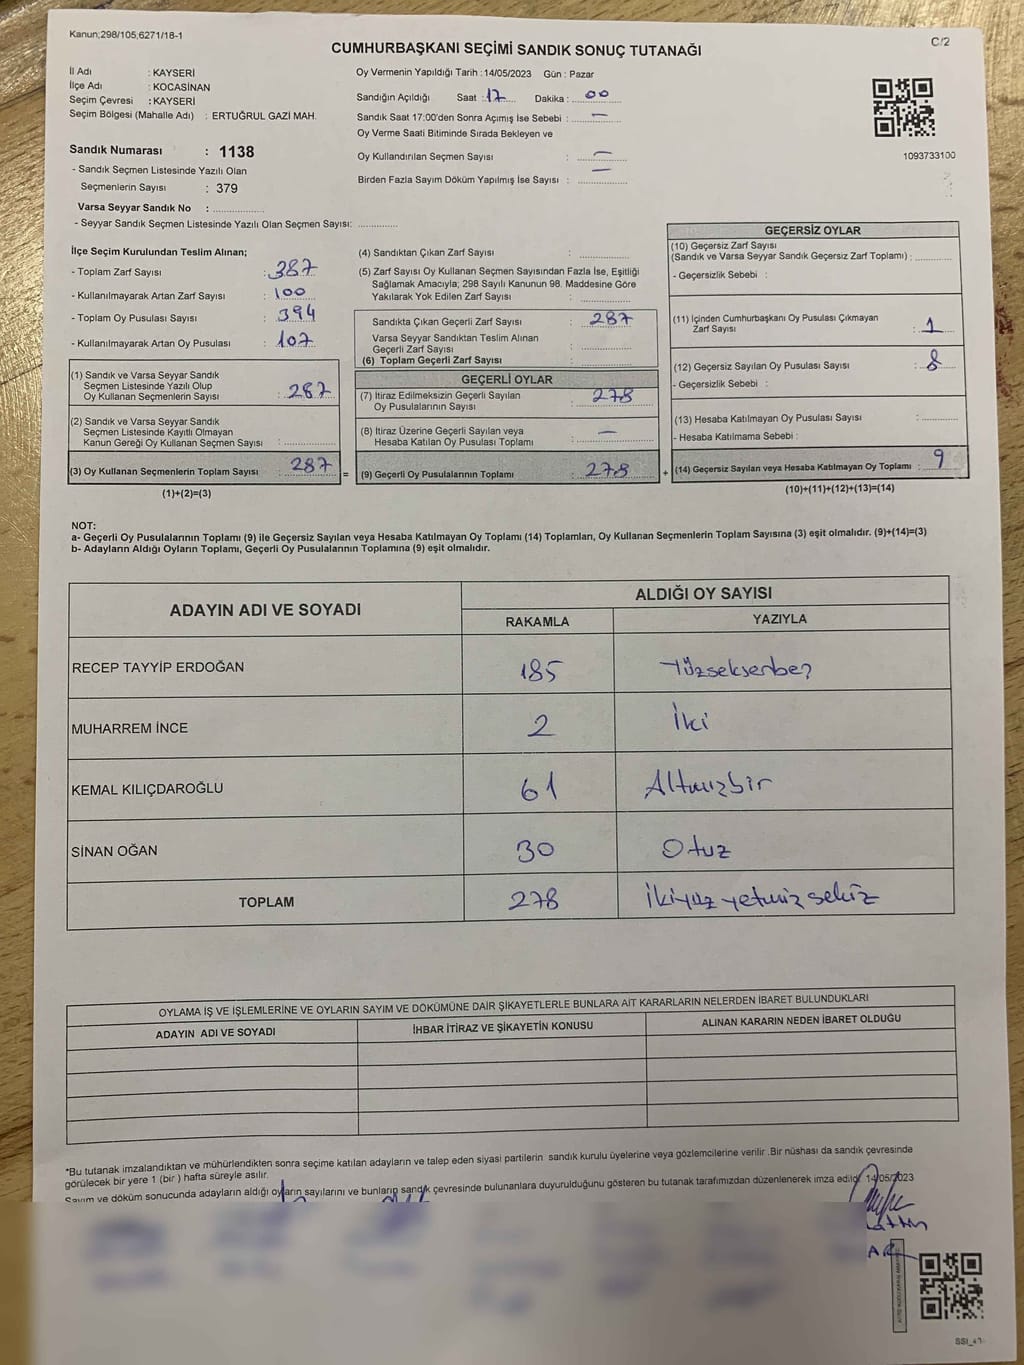 Kanun;298/105,6271/18-1
C/2
CUMHURBAŞKANI SEÇİMİ SANDIK SONUÇ TUTANAĞI
İl Adı : KAYSERİ
İlçe Adı : KOCASİNAN
Seçim Çevresi : KAYSERİ
Seçim Bölgesi (Mahalle Adı) : ERTUĞRUL GAZİ MAH.
Oy Vermenin Yapıldığı Tarih : 14/05/2023 Gün : Pazar
Sandığın Açıldığı Saat : 17 Dakika : 00
Sandık Saat 17:00'den Sonra Açımış İse Sebebi : —
Oy Verme Saati Bitiminde Sırada Bekleyen ve
Oy Kullandırılan Seçmen Sayısı : —
Birden Fazla Sayım Döküm Yapılmış İse Sayısı : —
1093733100
Sandık Numarası : 1138
- Sandık Seçmen Listesinde Yazılı Olan
Seçmenlerin Sayısı : 379
Varsa Seyyar Sandık No :
- Seyyar Sandık Seçmen Listesinde Yazılı Olan Seçmen Sayısı:
İlçe Seçim Kurulundan Teslim Alınan;
- Toplam Zarf Sayısı : 387
- Kullanılmayarak Artan Zarf Sayısı : 100
- Toplam Oy Pusulası Sayısı : 394
- Kullanılmayarak Artan Oy Pusulası : 107
(1) Sandık ve Varsa Seyyar Sandık
Seçmen Listesinde Yazılı Olup
Oy Kullanan Seçmenlerin Sayısı : 287
(2) Sandık ve Varsa Seyyar Sandık
Seçmen Listesinde Kayıtlı Olmayan
Kanun Gereği Oy Kullanan Seçmen Sayısı :
(3) Oy Kullanan Seçmenlerin Toplam Sayısı : 287 =
(1)+(2)=(3)
(4) Sandıktan Çıkan Zarf Sayısı :
(5) Zarf Sayısı Oy Kullanan Seçmen Sayısından Fazla İse, Eşitliği
Sağlamak Amacıyla; 298 Sayılı Kanunun 98. Maddesine Göre
Yakılarak Yok Edilen Zarf Sayısı :
Sandıkta Çıkan Geçerli Zarf Sayısı : 287
Varsa Seyyar Sandıktan Teslim Alınan
Geçerli Zarf Sayısı :
(6) Toplam Geçerli Zarf Sayısı :
GEÇERLİ OYLAR
(7) İtiraz Edilmeksizin Geçerli Sayılan
Oy Pusulalarının Sayısı : 278
(8) İtiraz Üzerine Geçerli Sayılan veya
Hesaba Katılan Oy Pusulası Toplamı : —
(9) Geçerli Oy Pusulalarının Toplamı : 278 +
GEÇERSİZ OYLAR
(10) Geçersiz Zarf Sayısı
(Sandık ve Varsa Seyyar Sandık Geçersiz Zarf Toplamı) :
- Geçersizlik Sebebi :
(11) İçinden Cumhurbaşkanı Oy Pusulası Çıkmayan
Zarf Sayısı : 1
(12) Geçersiz Sayılan Oy Pusulası Sayısı : 8
- Geçersizlik Sebebi :
(13) Hesaba Katılmayan Oy Pusulası Sayısı :
- Hesaba Katılmama Sebebi :
(14) Geçersiz Sayılan veya Hesaba Katılmayan Oy Toplamı : 9
(10)+(11)+(12)+(13)=(14)
NOT:
a- Geçerli Oy Pusulalarının Toplamı (9) ile Geçersiz Sayılan veya Hesaba Katılmayan Oy Toplamı (14) Toplamları, Oy Kullanan Seçmenlerin Toplam Sayısına (3) eşit olmalıdır. (9)+(14)=(3)
b- Adayların Aldığı Oyların Toplamı, Geçerli Oy Pusulalarının Toplamına (9) eşit olmalıdır.
ADAYIN ADI VE SOYADI ALDIĞI OY SAYISI
RAKAMLA YAZIYLA
RECEP TAYYİP ERDOĞAN 185 Yüzseksenbeş
MUHARREM İNCE 2 İki
KEMAL KILIÇDAROĞLU 61 Altmışbir
SİNAN OĞAN 30 Otuz
TOPLAM 278 İkiyüz yetmiş sekiz
OYLAMA İŞ VE İŞLEMLERİNE VE OYLARIN SAYIM VE DÖKÜMÜNE DAİR ŞİKAYETLERLE BUNLARA AİT KARARLARIN NELERDEN İBARET BULUNDUKLARI
ADAYIN ADI VE SOYADI İHBAR İTİRAZ VE ŞİKAYETİN KONUSU ALINAN KARARIN NEDEN İBARET OLDUĞU
*Bu tutanak imzalandıktan ve mühürlendikten sonra seçime katılan adayların ve talep eden siyasi partilerin sandık kurulu üyelerine veya gözlemcilerine verilir .Bir nüshası da sandık çevresinde
görülecek bir yere 1 (bir ) hafta süreyle asılır.
Sayım ve döküm sonucunda adayların aldığı oyların sayılarını ve bunların sandık çevresinde bulunanlara duyurulduğunu gösteren bu tutanak tarafımızdan düzenlenerek imza edildi. 14/05/2023